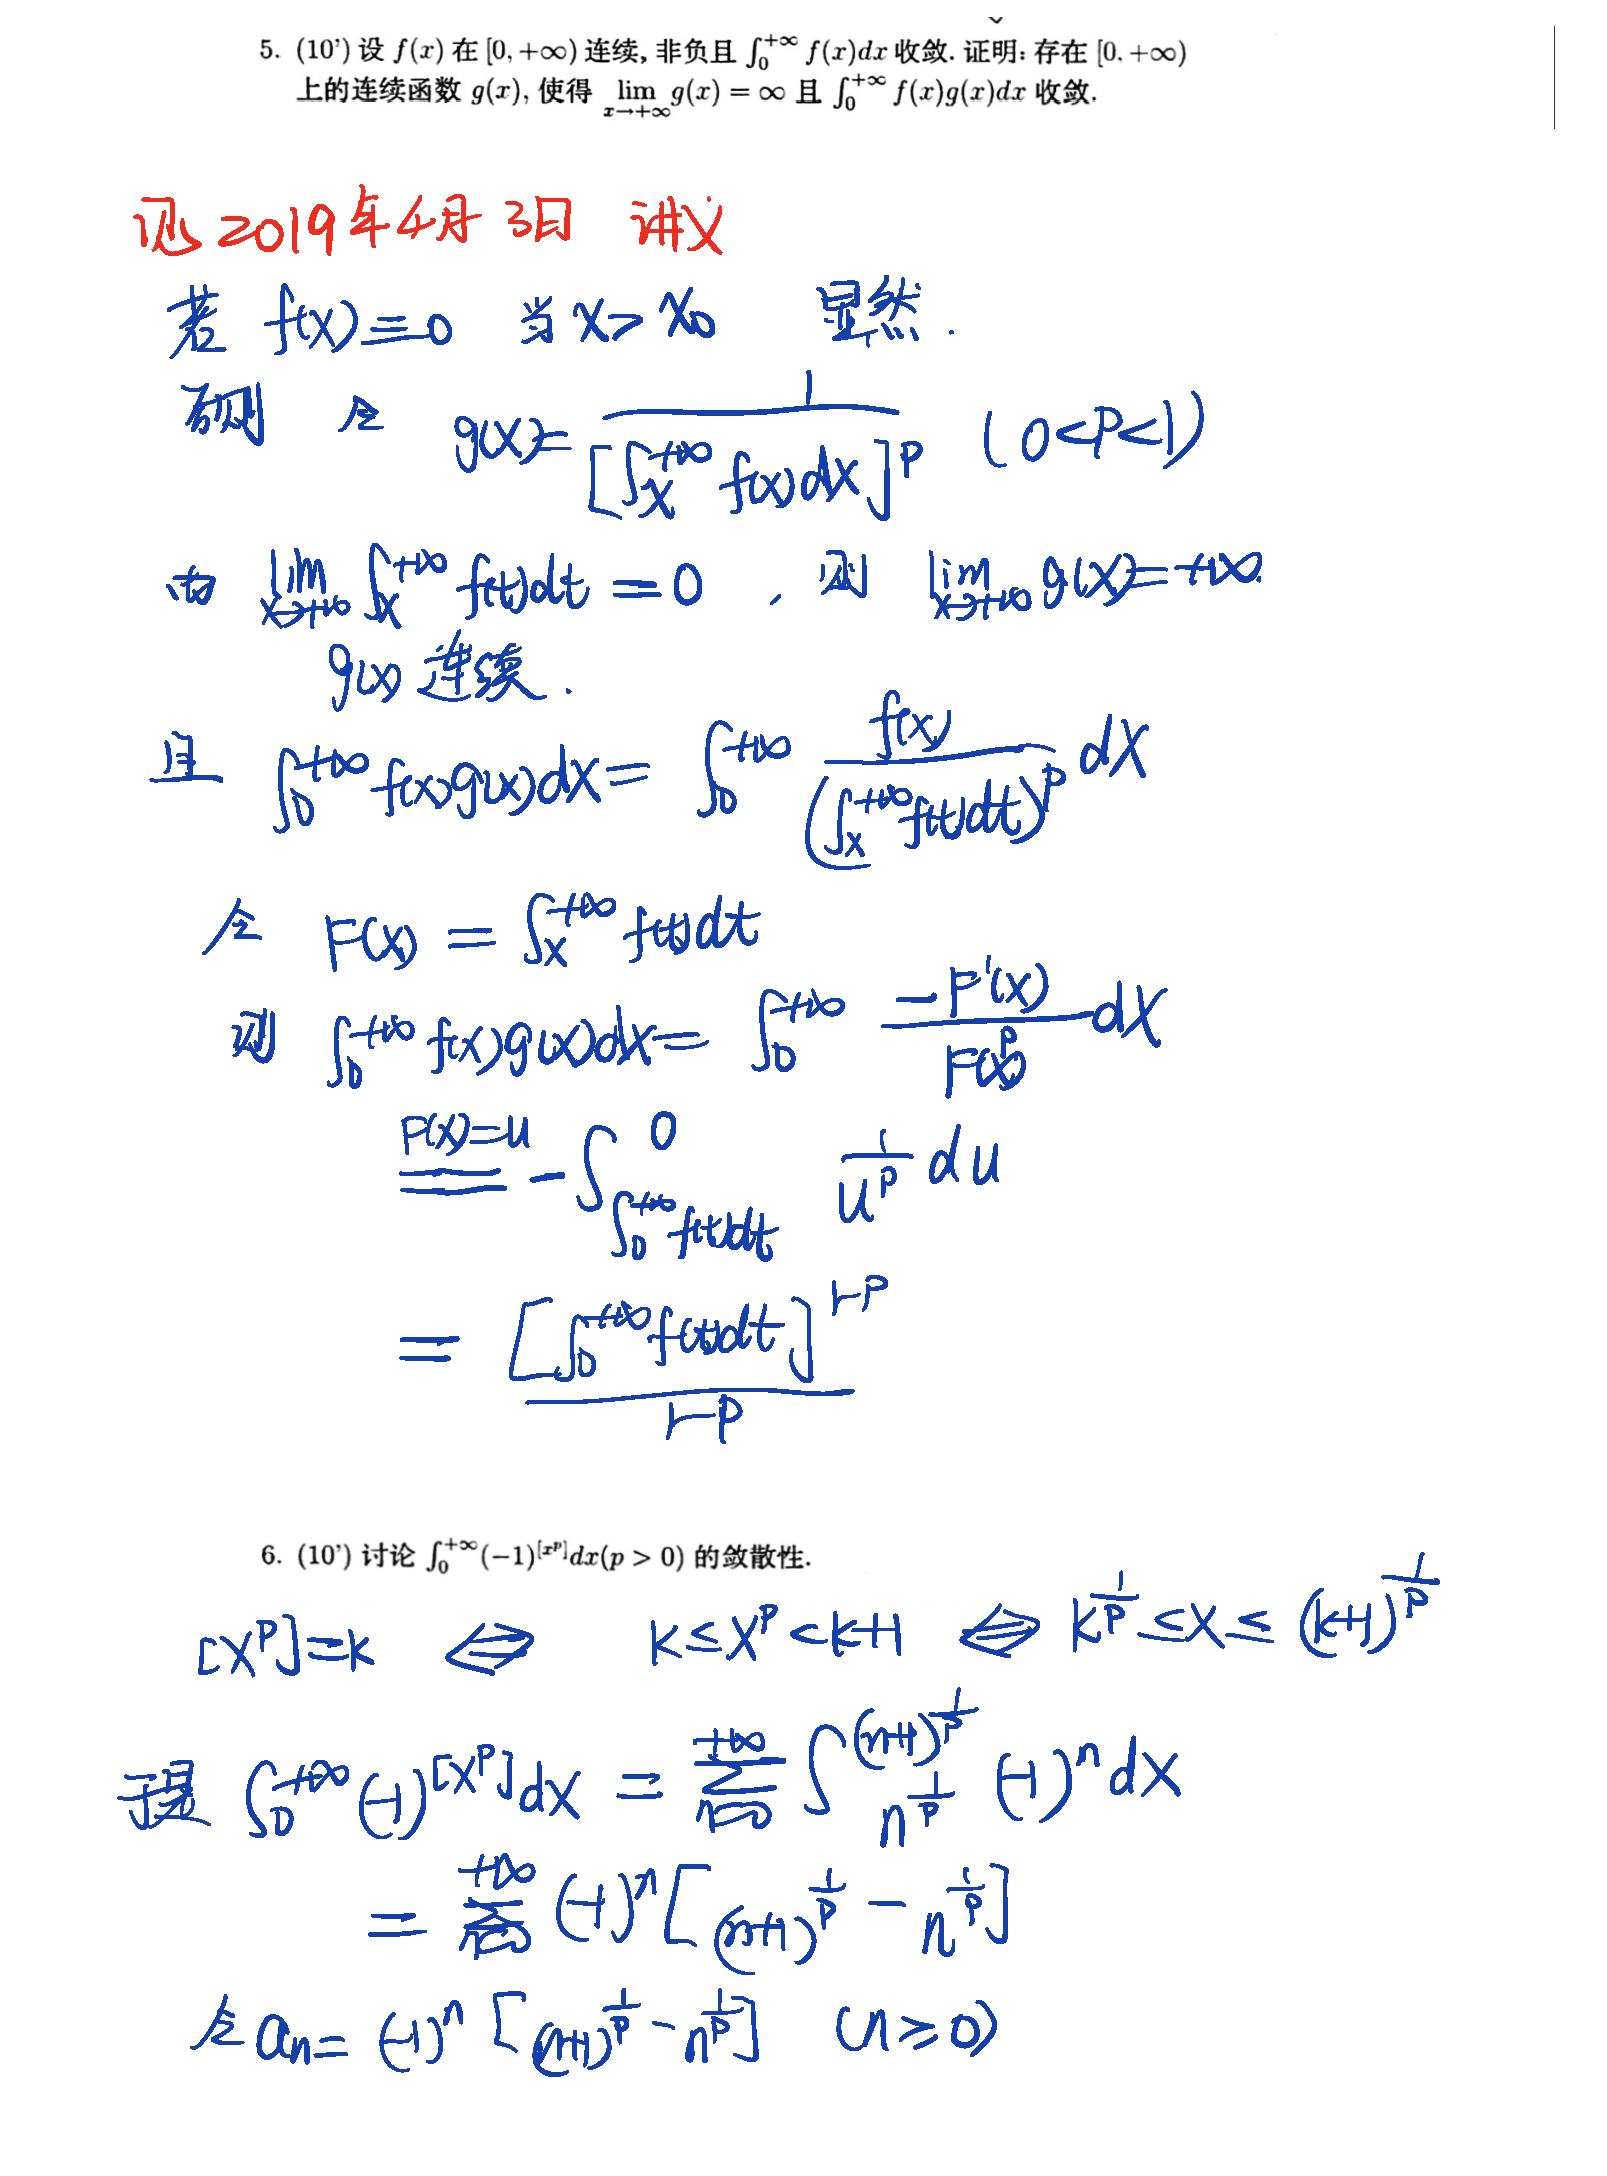 5. (10') 设 f(x) 在 [0, +∞) 连续, 非负且 ∫₀^{+∞} f(x)dx 收敛. 证明: 存在 [0, +∞)
上的连续函数 g(x), 使得 lim_{x→+∞} g(x) = ∞ 且 ∫₀^{+∞} f(x)g(x)dx 收敛.
见2019年4月3日 讲义
若 f(x)≡0 当 x> x₀ 显然.
否则 令 g(x)= 1/[∫_x^{+∞} f(x)dx]^p (0<p<1)
由 lim_{x→+∞} ∫_x^{+∞} f(t)dt = 0 , 则 lim_{x→+∞} g(x)=+∞.
g(x) 连续.
且 ∫₀^{+∞} f(x)g(x)dx = ∫₀^{+∞} f(x)/(∫_x^{+∞} f(t)dt)^p dx
令 F(x) = ∫_x^{+∞} f(t)dt
则 ∫₀^{+∞} f(x)g(x)dx = ∫₀^{+∞} -F'(x)/F(x)^p dx
F(x)=u == -∫_{∫₀^{+∞} f(t)dt}^0 1/u^p du
= [∫₀^{+∞} f(t)dt]^{1-p}/(1-p)
6. (10') 讨论 ∫₀^{+∞} (−1)^{[x^p]} dx(p > 0) 的敛散性.
[x^p]=k ⟺ k≤x^p<k+1 ⟺ k^{1/p} ≤x≤ (k+1)^{1/p}
于是 ∫₀^{+∞} (-1)^{[x^p]} dx = ∑_{n=0}^{+∞} ∫_{n^{1/p}}^{(n+1)^{1/p}} (-1)^n dx
= ∑_{n=0}^{+∞} (-1)^n [(n+1)^{1/p} - n^{1/p}]
令 a_n= (-1)^n [(n+1)^{1/p} - n^{1/p}] (n≥0)